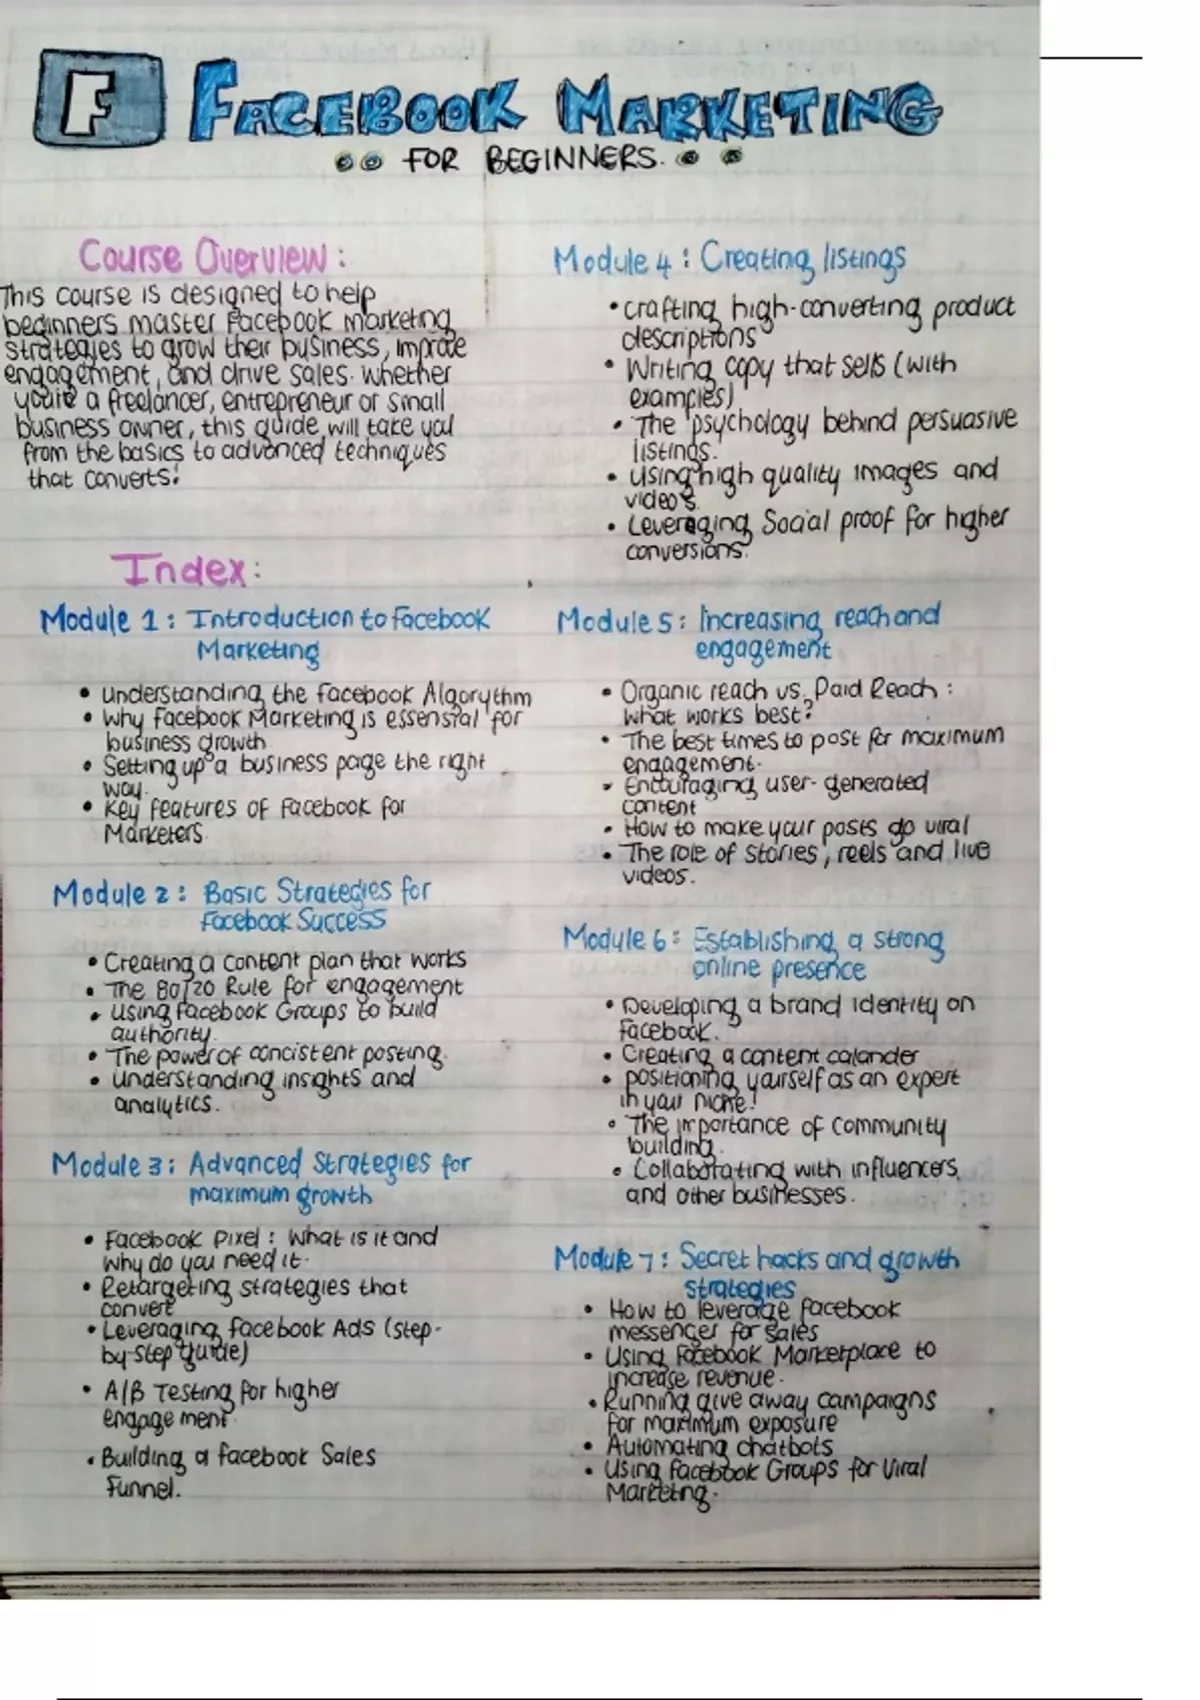 F FACEBOOK MARKETING
FOR BEGINNERS.
Course Overview:
This course is designed to help
beginners master Facebook marketing
strategies to grow their business, improve
engagement, and drive sales. Whether
you're a freelancer, entrepreneur or small
business owner, this guide will take you
from the basics to advanced techniques
that converts!
Index:
Module 1: Introduction to Facebook
Marketing
• Understanding the Facebook Algorythm
• Why Facebook Marketing is essensial for
business growth
• Setting up a business page the right
way.
• Key features of Facebook for
Marketers.
Module 2: Basic Strategies for
Facebook Success
• Creating a content plan that works
• The 80/20 Rule for engagement
• Using Facebook Groups to build
authority.
• The power of concistent posting.
• Understanding insights and
analytics.
Module 3: Advanced Strategies for
maximum growth
• Facebook Pixel: What is it and
why do you need it.
• Retargeting strategies that
convert
• Leveraging Facebook Ads (step-
by-step guide)
• A/B Testing for higher
engagement.
• Building a facebook Sales
Funnel.
Module 4: Creating listings
• Crafting high-converting product
descriptions
• Writing copy that sells (with
examples)
• The psychology behind persuasive
listings.
• Using high quality images and
videos.
• Leveraging Social proof for higher
conversions.
Module 5: Increasing reach and
engagement
• Organic reach vs. Paid Reach:
what works best?
• The best times to post for maximum
engagement.
• Encouraging user-generated
content
• How to make your posts go viral
• The role of stories, reels and live
videos.
Module 6: Establishing a strong
online presence
• Developing a brand identity on
Facebook.
• Creating a content calander
• positioning yourself as an expert
in your niche!
• The importance of community
building.
• Collaborating with influencers,
and other businesses.
Module 7: Secret hacks and growth
strategies
• How to leverage facebook
messenger for sales
• Using Facebook Marketplace to
increase revenue.
• Running give away campaigns
for maximum exposure
• Automating chatbots
• Using Facebook Groups for Viral
Marketing.